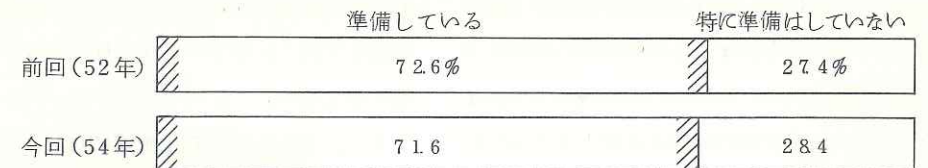 準備している 特に準備はしていない
前回(52年) 72.6% 27.4%
今回(54年) 71.6 28.4